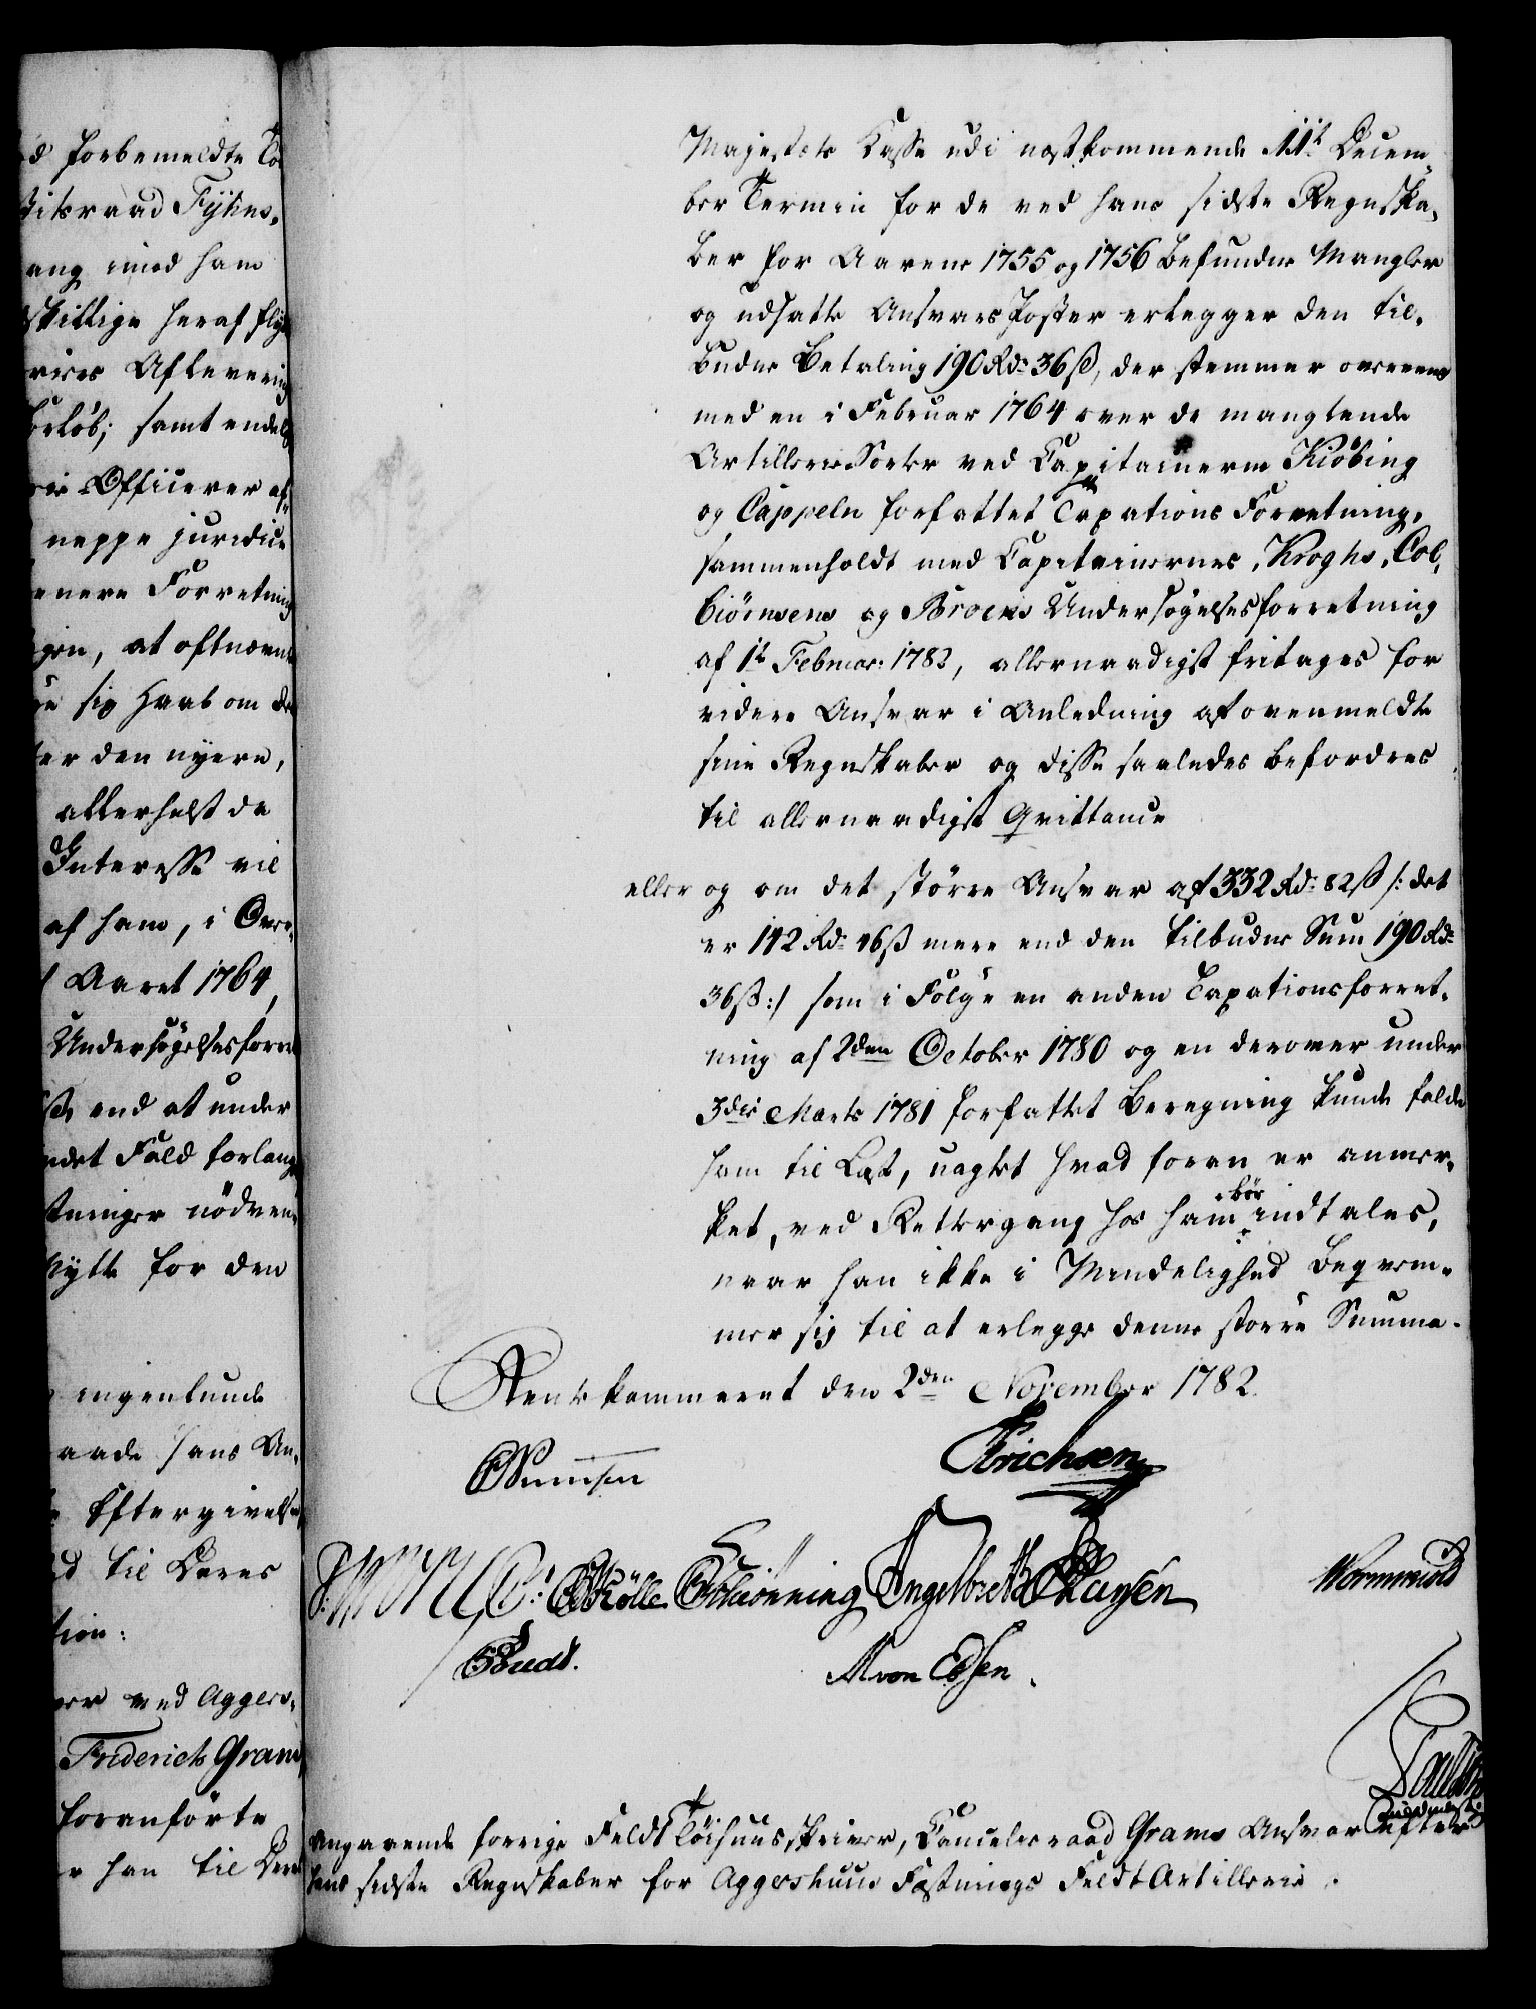 d forbemeldte To
sitsraad Fyhns,
ang imod ham
skillige heraf flyd
Afleverings
orløb; samt endel
Officerer af
neppe juridice
enere Forretning
gen, at oftnævn
sig Haab om de
er den nyere,
allerhelst da
Interesse vil
af ham, i Over
Aaret 1764,
Undersøgelsesforret
end at under
det Fald forlang
tninger nødven
nytte for den
ingenlunde
aade hans An
Eftergivelse
d til Deres
tion:
ved Aggers,
Friderich Gram
foranførte
r han til Deres
Majestets Casse udi næstkommende 11te Decem,
ber Termin for de ved hans sidste Regnska,
ber for Aarene 1755 og 1756 befundne Mangler
og udsatte Ansvars Poster erlegger den til,
budne Betaling 190 Rdr 36 ß, der stemmer overeens
med en i Februar 1764 over de manglende
Artillerie Sorter ved Capitainerne Kiöbing
og Cappeln forfattet Taxations Forretning,
sammenholdt med Capitainernes, Kroghs, Col,
biörnsens og Brochs Undersøgelsesforretning
af 1te Februar: 1782, allernaadigst fritages for
videre Ansvar i Anledning af ovenmeldte
sine Regnskaber og disse saaledes befordres
til allernaadigst Qvittance
eller og om det større Ansvar af 332 Rdr 82 ß /: det
er 142 Rdr 46 ß mere end den tilbudne Sum 190 Rdr
36 ß :/ som i Følge en anden Taxationsforret,
ning af 2den October 1780 og en derover under
3die Marts 1781 forfattet Beregning kunde falde
ham til Last, uagtet hvad foran er anmer,
ket, ved Rettergang hos ham bør indtales,
naar han ikke i Mindelighed beqvem,
mer sig til at erlegge denne større Summa.
Rentekammeret den 2den November 1782.
Erichsen
Mölle Schiönning Engelbreth Hansen Wormskiold
Budt.
M von Essen.
angaaende forrige Feldt Töihuusskriver, Cancelieraad Grams Ansvar efter
hans sidste Regnskaber for Aggershuus Fæstnings Feldt Artillerie.